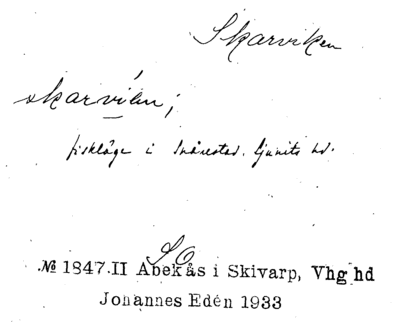 Skarviken
skarvíen;
fiskläge i Snårestad. Ljunits hd.
S O
№ 1847.II Abekås i Skivarp, Vhg hd
Johannes Edén 1933